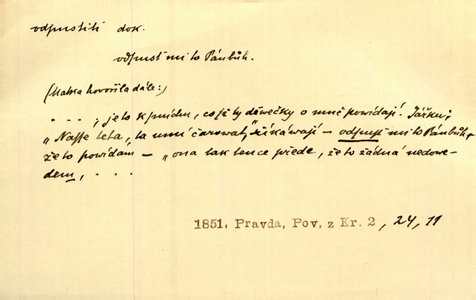 odpustiti dok.
odpusť mi to Pánbůh.
(Matka hovořila dále:)
. . . , je to k smíchu, co jé ty děwečky o mně powídají. Jářku;
„Naše teta, ta umí čarowat", říkáwají — odpusť mi to Pánbůh,
že to powídám — „ona tak tence přede, že to žádná nedowe-
dem, . . .
1851. Pravda, Pov. z Kr. 2, 24, 11